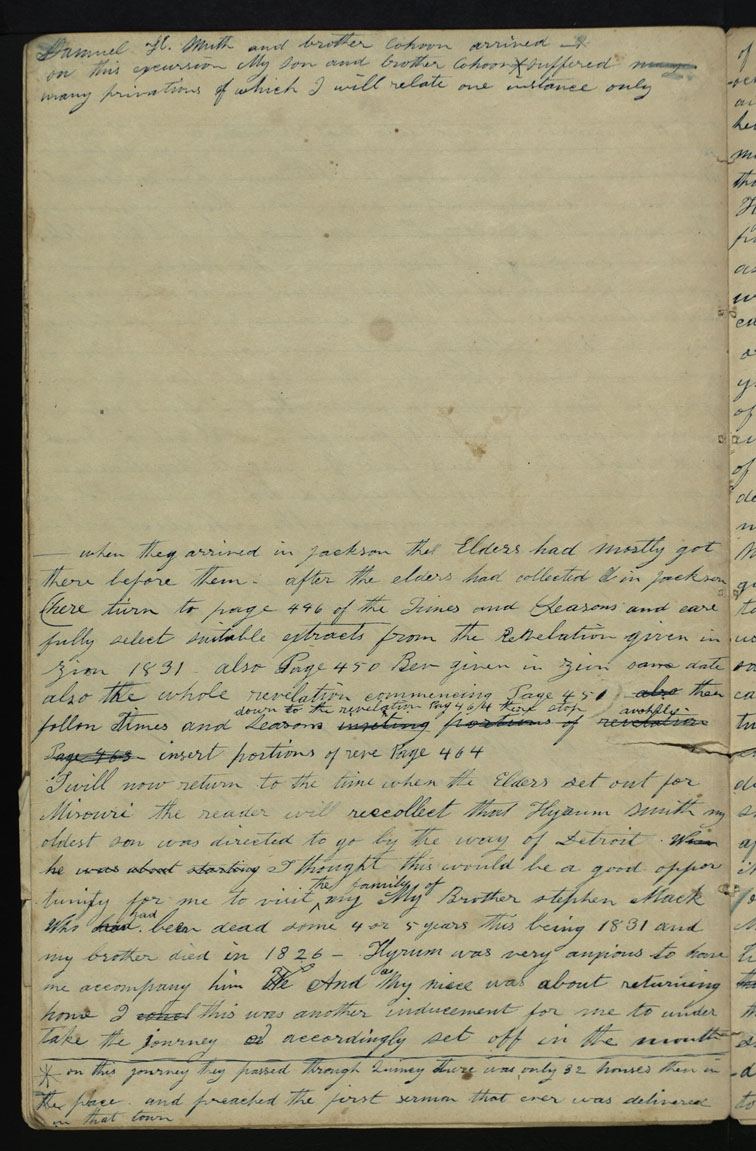 Samuel H. Smith and brother Cohoon arrived —
on this excursion My son and brother Cohoon * suffered many
many privations of which I will relate one instance only
— when they arrived in jackson the Elders had mostly got
there before them - after the elders had collected in jackson
(here turn to page 496 of the Times and Seasons and care
fully select suitable extracts from the Revelation given in
Zion 1831 also Page 450 Rev given in Zion same date
also the whole revelation commencing Page 451) also then
down to the revelation Pag 464 there stop
follow Times and Seasons inserting portions of revelation
Page 463 insert portions of reve Page 464
I will now return to the time when the Elders set out for
Missouri the reader will reccollect that Hyrum Smith my
oldest son was directed to go by the way of Detroit. When
he was about starting I thought this would be a good oppor
tunity for me to visit the family of my My Brother stephen Mack
Who had had been dead some 4 or 5 years this being 1831 and
my brother died in 1826 - Hyrum was very anxious to have
me accompany him And as My niece was about returning
home I this was another inducement for me to under
take the journey accordingly set off in the month
* on this journey they passed through Quincy there was only 32 houses then in
the place. and preached the first sermon that ever was delivered
in that town